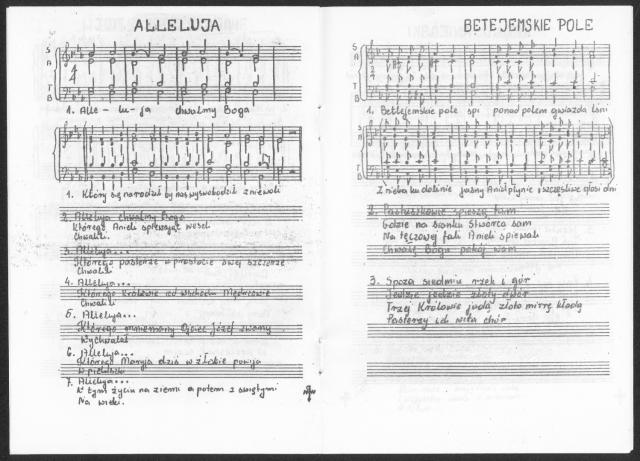 ALLELUJA
S
A
T
B
1. Alle - lu - ja chwalmy Boga
1. Który się narodził by nas wyswobodził z niewoli
2. Alleluja chwalmy Boga
Którego Anieli śpiewając weseli
Chwalili.
3. Alleluja...
Którego pasterze w prostocie swej szczerze
Chwalili
4. Alleluja...
Którego Królowie od Wschodu Mędrcowie
Chwalili
5. Alleluja...
Którego mniemany Ojciec Józef zwany
Wychwalał
6. Alleluja...
Którego Maryja dziś w żłobie powija
W pieluszki
7. Alleluja...
K tym życiu na ziemi a potem z świętymi
Na wieki.
BETEJEMSKIE POLE
S
A
T
B
1. Betlejemskie pole śpi ponad polem gwiazda lśni
Z nieba ku dolinie jasny Anioł płynie i szczęśliwe głosi dni
2. Pastuszkowie spieszą tam
Gdzie na sianku Stwórca sam
Na tęczowej fali Anieli śpiewali
Chwała Bogu pokój wam
3. Spoza siedmiu rzek i gór
Jedzie jedzie złoty dwór
Trzej Królowie jadą złoto mirrę kładą
Pasterzy ich wita chór